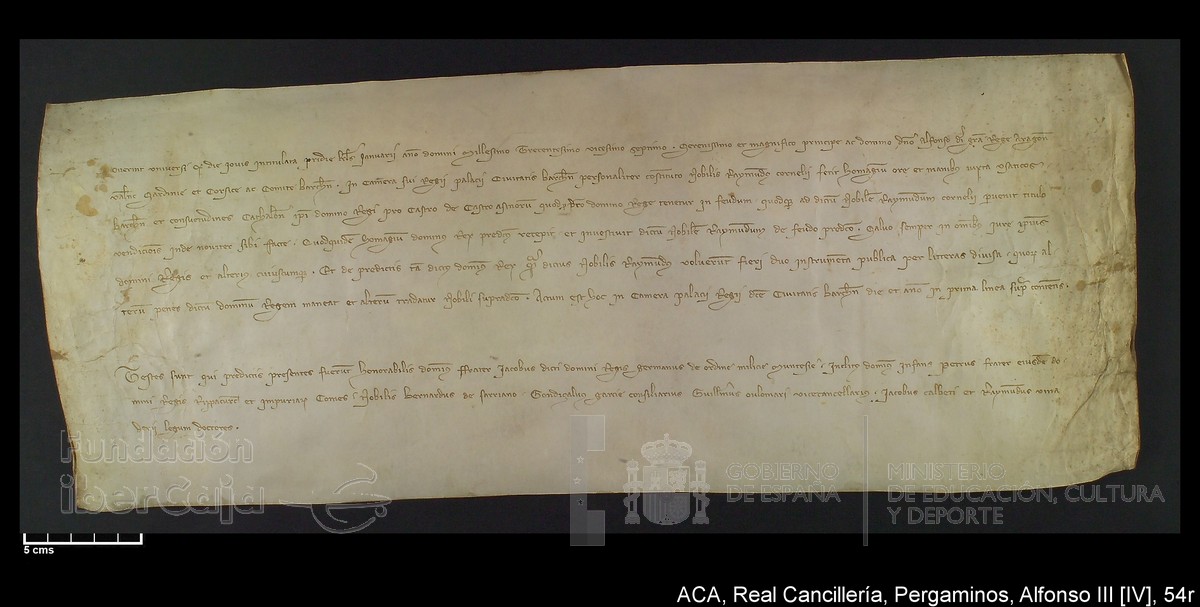 overint universi q̄ die jovis intitulata pridie kl̄s Januarii año domini Millesimo Trecentesimo vicesimo septimo. Serenissimo et magnifico principe ac domino dño Alfonso dei grā Rege Aragon̄
Valn̄c Sardinie et Corsice ac Comite barchn̄. in Camera sui Regii palacii Civitatis barchn̄ personaliter constituto Nobilis Raymūdo cornelii fecit homagiū ore et manibȝ iuxta usaticos
barchn̄ et consuetudines Cathalon̄ ip̄i domino Regi pro Castro de Castro asinorū quod pro dc̄o domino Rege tenetur in feudum quodqȝ ad dictū Nobilē Raymundum cornelii pervenit titulo
vendicionis inde noviter sibi facte. Quodquidē homagiū dominus Rex predc̄us recepit et investivit dictū Nobilē Raymundum de feudo predc̄o. Salvo semper in omnibȝ iure ip̄ius
domini Regis et alterius cuiusqumqȝ. Et de predictis tā dictus dominȝ Rex q̄ dictus Nobilis Raymundȝ voluerunt fieri duo instrumenta publica per litteras divisa. quorȝ al
terū penes dictū dominū Regem maneat et alterū tradatur Nobili supradc̄o. Actum est hoc in Camera palacii Regii dc̄e Civitatis barchn̄ die et año in prima linea sup̄ contentis.
Testes sunt qui predictis presentes fuerūt honorabilis dominȝ ffrater Jacobus dicti domini Regis germanus de ordine milicie Muntesie. Inclitȝ dominȝ infans Petrus frater eiusdē do
mini Regis Rippacurcē et impuriarȝ Comes. Nobilis bernardus de sarriano. Gondiçalvus garcie consiliarius Guillmȝ oulomari vicecancellariȝ. Jacobus calbeti et Raymūdus vina
derii legum doctores.
Fundación
iberCaja
GOBIERNO
DE ESPAÑA
MINISTERIO
DE EDUCACIÓN, CULTURA
Y DEPORTE
5 cms
ACA, Real Cancillería, Pergaminos, Alfonso III [IV], 54r